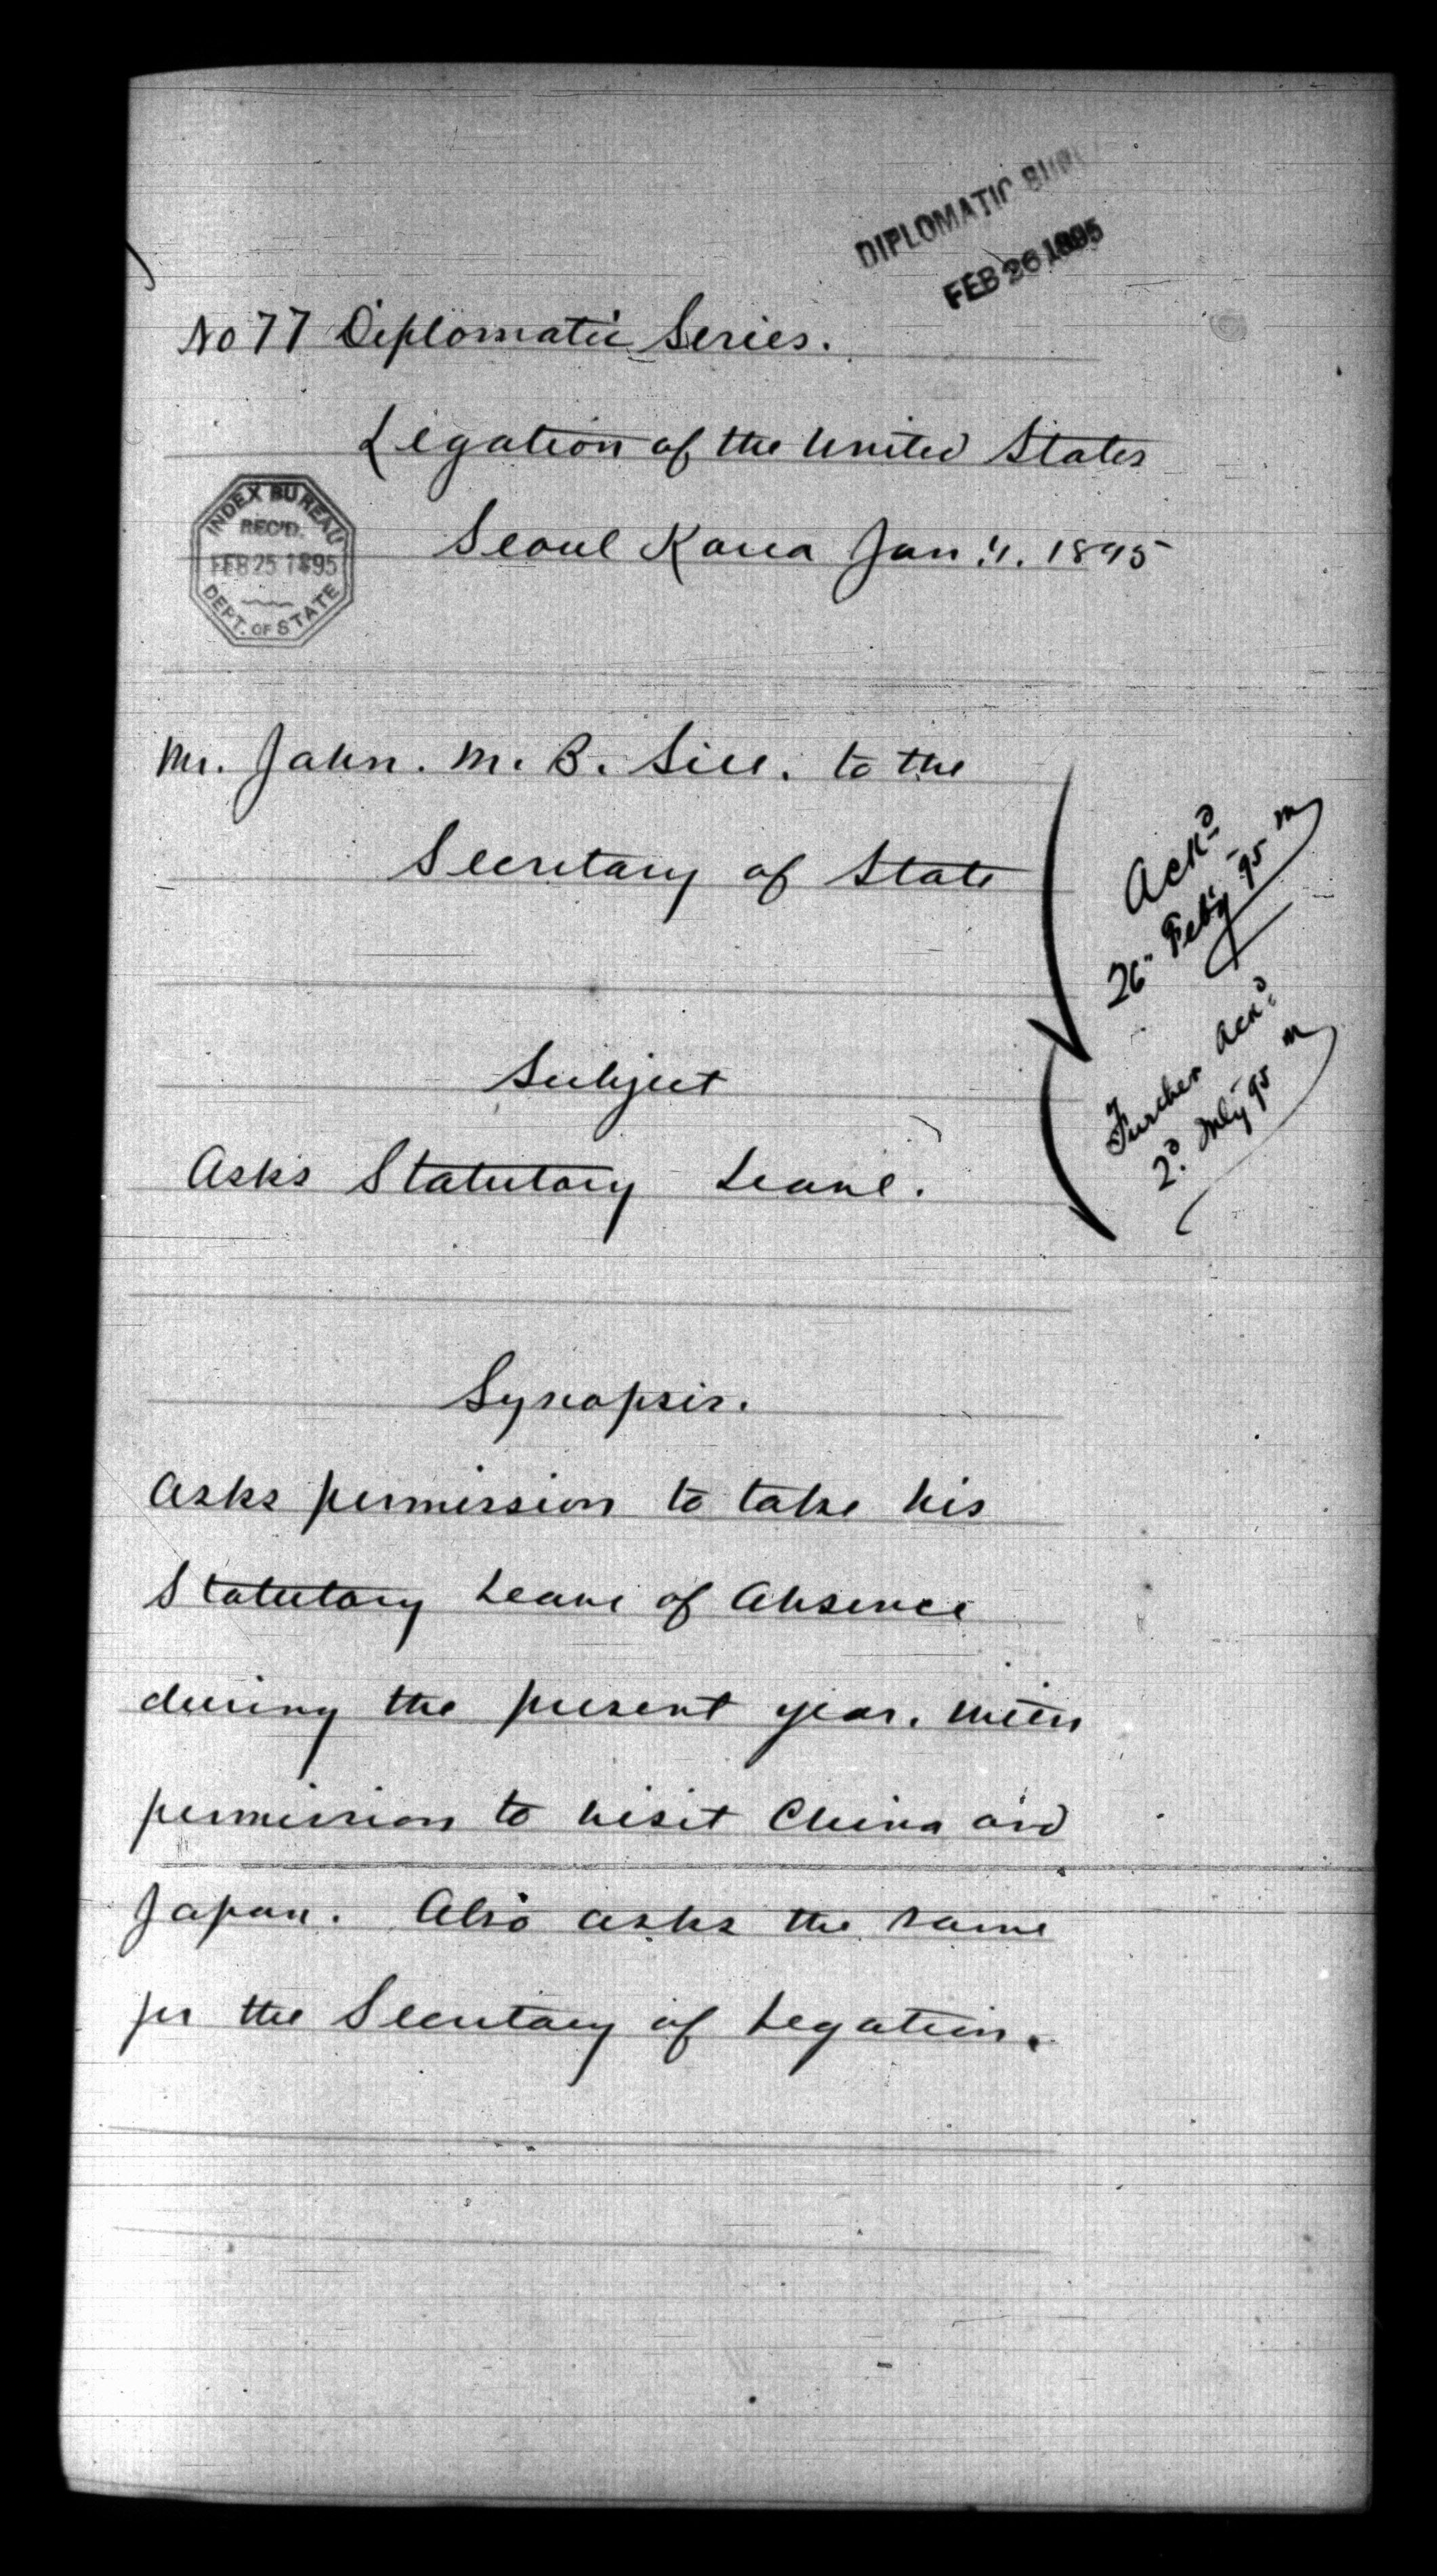 DIPLOMATIC
FEB 26 1895
No 77 Diplomatic Series.
Legation of the United States
INDEX BUREAU
REC'D.
FEB 25 1895
DEPT. OF STATE
Seoul Korea Jan 1895
Mr. John. M. B. Sill. to the
Secretary of State
Ack'd
26" Feb'y 95
Further Ack'd
2d July 95
Subject
Asks Statutory Leave.
Synopsis.
Asks permission to take his
Statutory Leave of Absence
during the present year. With
permission to visit China and
Japan. Also asks the same
for the Secretary of Legation.